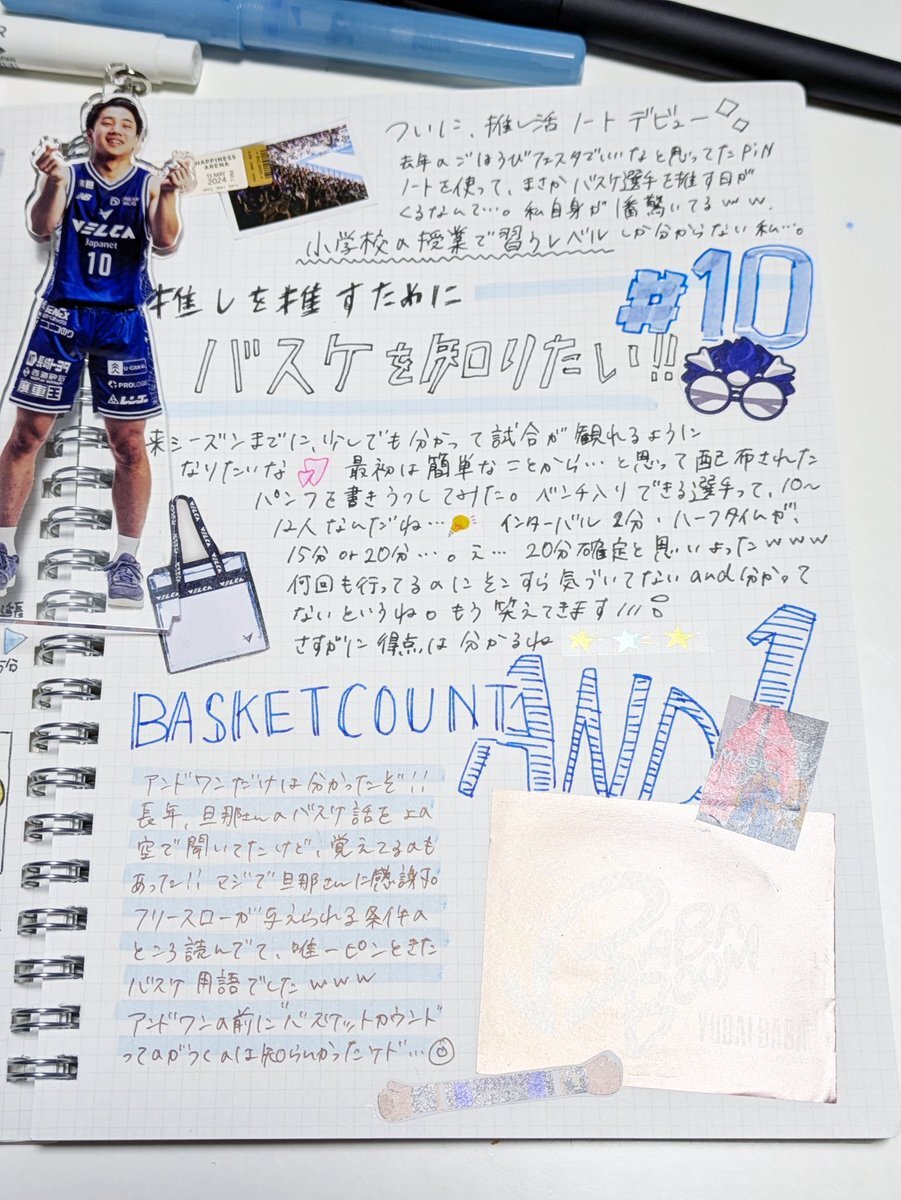 ついに、推し活ノートデビュー
去年のごほうびフェスタでいいなと思ってたPiN
ノートを使って、まさかバスケ選手を推す日が
くるなんて…。私自身が1番驚いてるww.
小学校の授業で習うレベルしか分からない私…。
HAPPINESS
ARENA
13 MAY
2024
#10
推しを推すために
バスケを知りたい!!
VELCA
Japanet
10
U-CANAL
PROLOGIS
来シーズンまでに、少しでも分かって試合が観れるように
なりたいな 最初は簡単なことから…と思って配布された
パンフを書きうつしてみた。ベンチ入りできる選手って、10〜
12人なんだね… インターバル2分・ハーフタイムが、
15分or20分…。え…20分確定と思いよったwww
何回も行ってるのにそこすら気づいてないand分かって
ないというね。もう笑えてきます!!!
さすがに得点は分かるね
VELCA
VELCA
BASKETCOUNT
AND1
アンドワンだけは分かったぞ!!
長年、旦那さんのバスケ話をよそ
空で聞いてたけど、覚えてるのも
あった!! マジで旦那さんに感謝す。
フリースローが与えられる条件の
ところ読んでて、唯一ピンときた
バスケ用語でしたwww
アンドワンの前に"バスケットカウント"
ってのがつくのは知らんかったケド…
BABA
YUDAI BABA